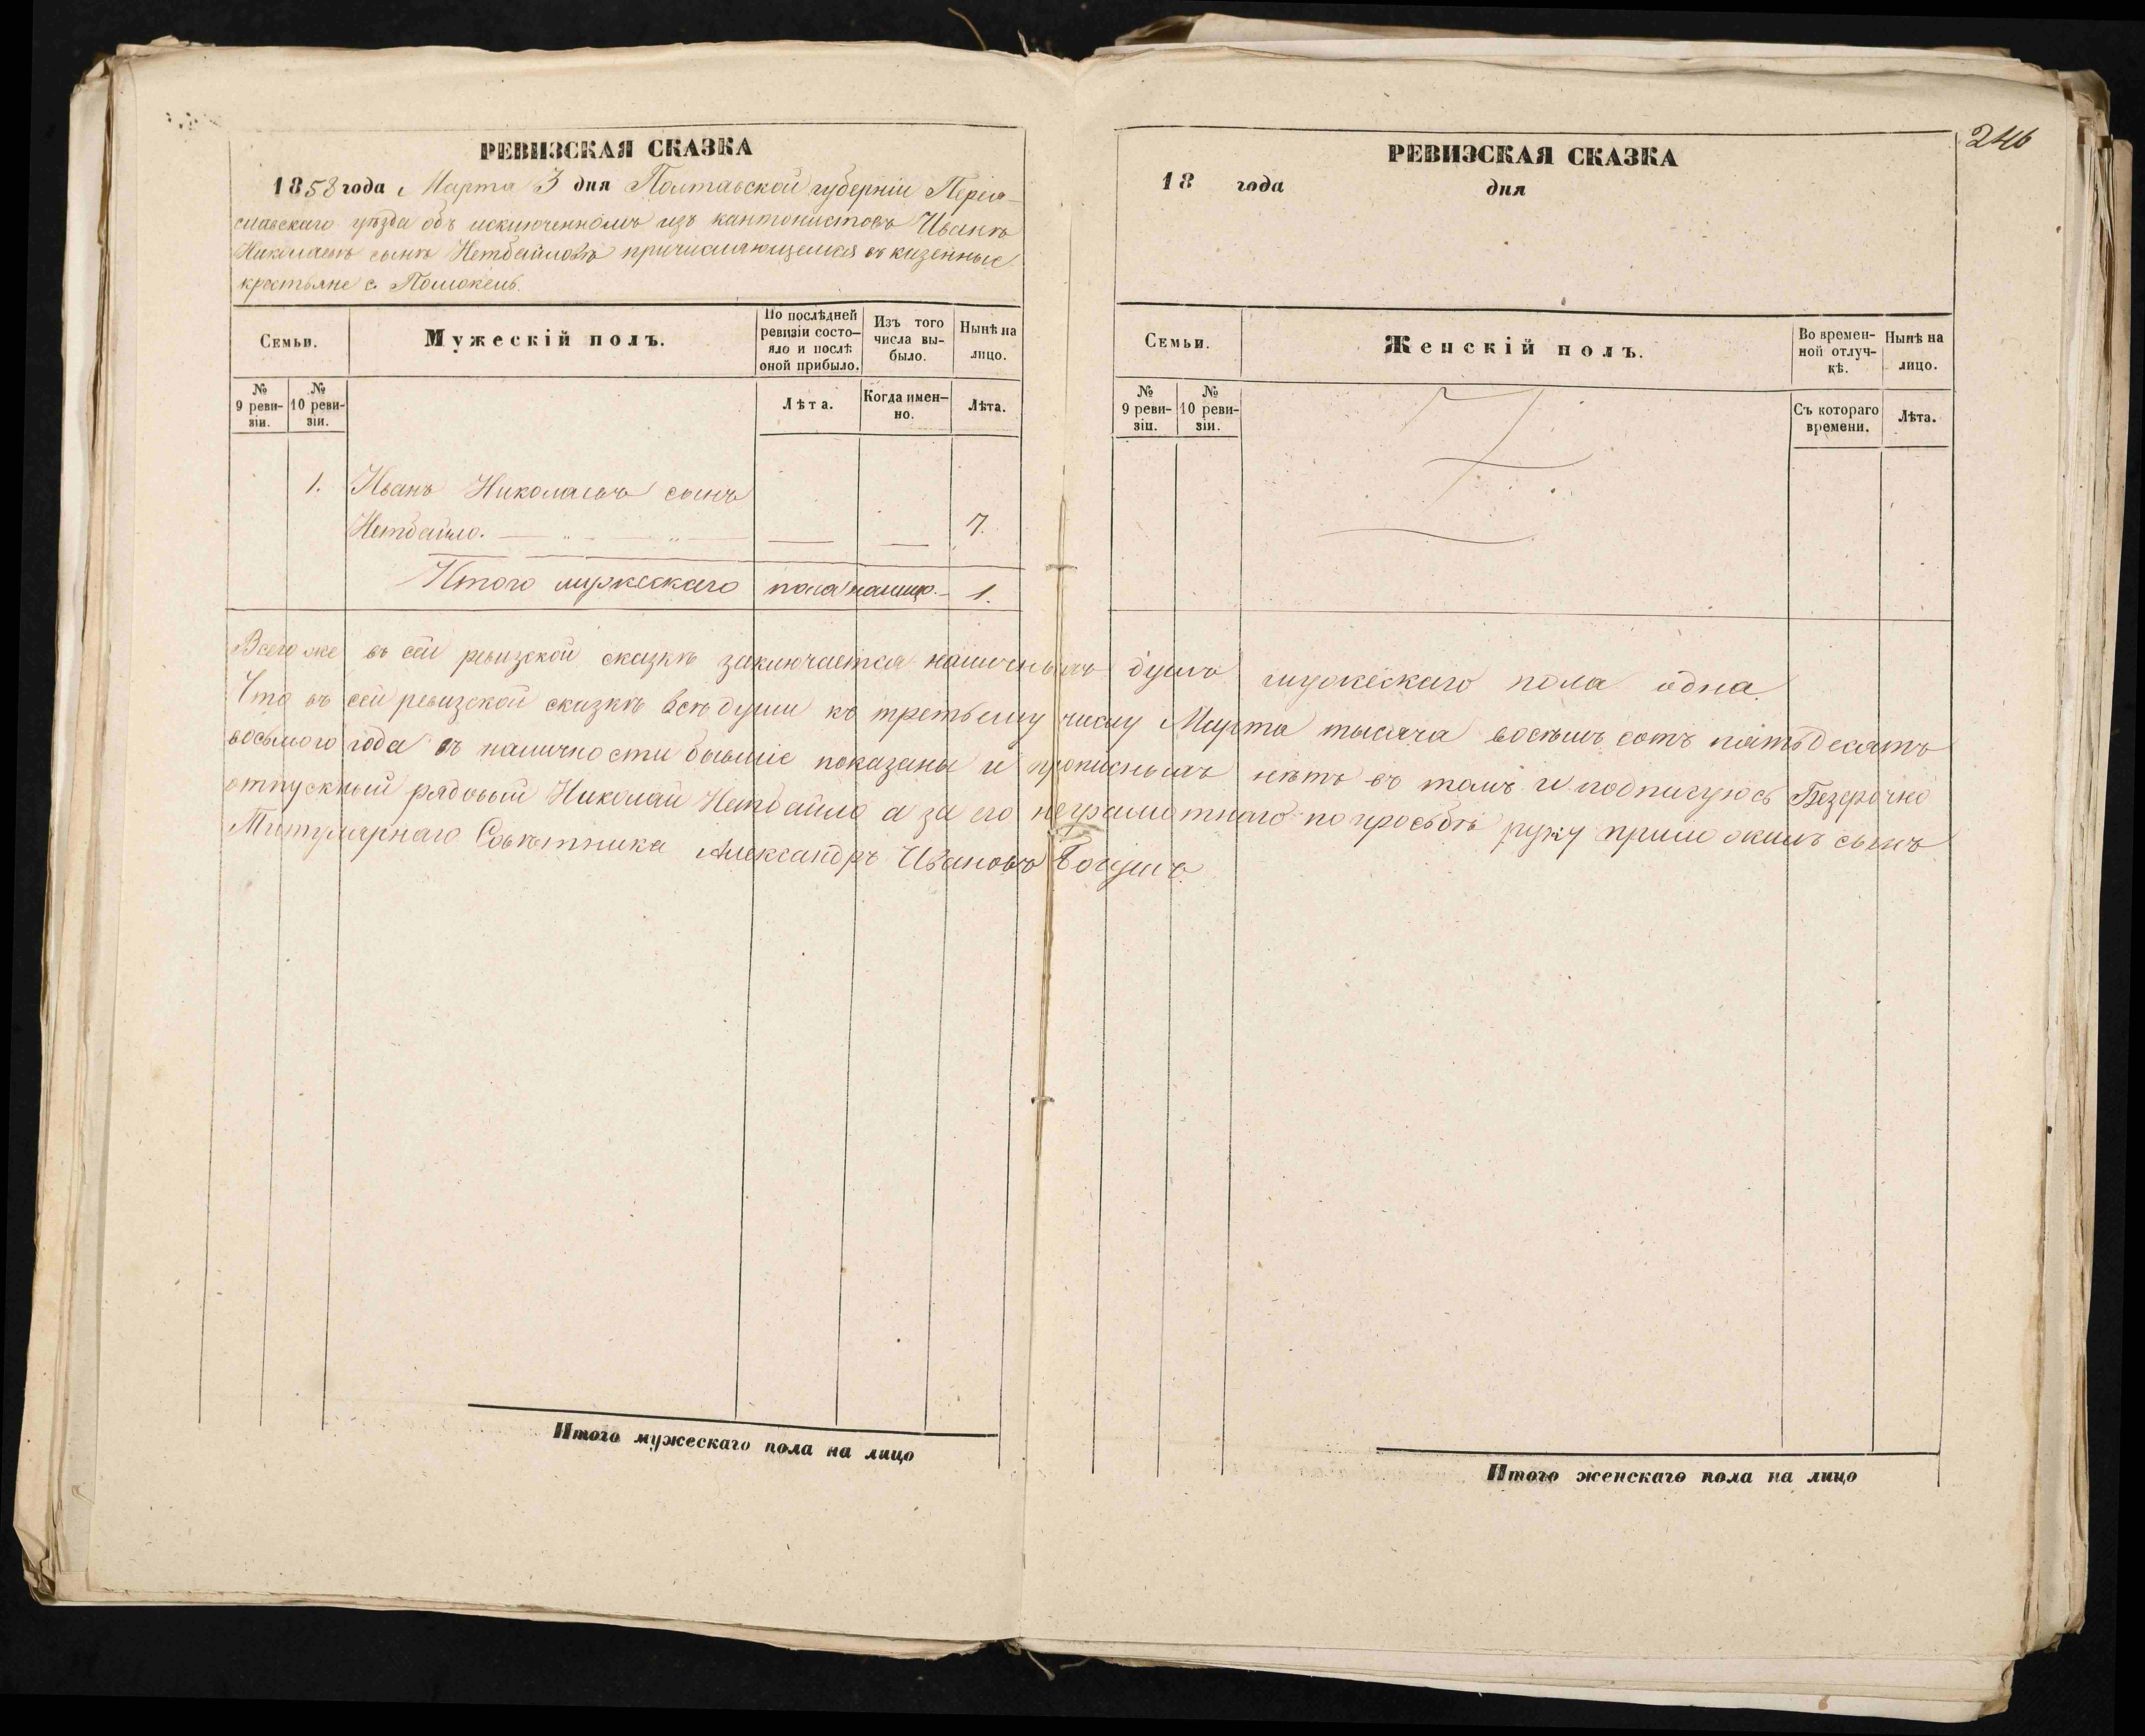 РЕВИЗСКАЯ СКАЗКА
1858 года Марта 3 дня Полтавской губерніи Перея-
славскаго уѣзда объ исключенномъ изъ кантонистовъ Иванѣ
Николаевѣ сынѣ Нетбайловѣ причисляющемся въ казенные
крестьяне с. Помокель.
Семьи.
Мужескій полъ.
По послѣдней ревизіи состо-
яло и послѣ оной прибыло.
Изъ того числа вы-
было.
Нынѣ на лицо.
№ 9 реви-
зіи.
№ 10 реви-
зіи.
Лѣта.
Когда имен-
но.
Лѣта.
1. Иванъ Николаевъ сынъ
Нетбайло. 7.
Итого мужескаго пола налицо. 1.
РЕВИЗСКАЯ СКАЗКА
246
18 года дня
Семьи.
Женскій полъ.
Во времен-
ной отлуч-
кѣ.
Нынѣ на лицо.
№ 9 реви-
зіи.
№ 10 реви-
зіи.
Съ котораго времени.
Лѣта.
Всего же въ сей ревизской сказкѣ заключается наличныхъ душъ мужескаго пола одна.
Что въ сей ревизской сказкѣ всѣ души къ третьему числу Марта тысяча восемь сотъ пятьдесятъ
восьмого года въ наличности бывшіе показаны и прописныхъ нѣтъ въ томъ и подписуюсь Безсрочно
отпускный рядовый Николай Нетбайло а за его неграмотнаго по просьбѣ руку приложилъ сынъ
Титулярнаго Совѣтника Александръ Ивановъ
Итого мужескаго пола на лицо
Итого женскаго пола на лицо